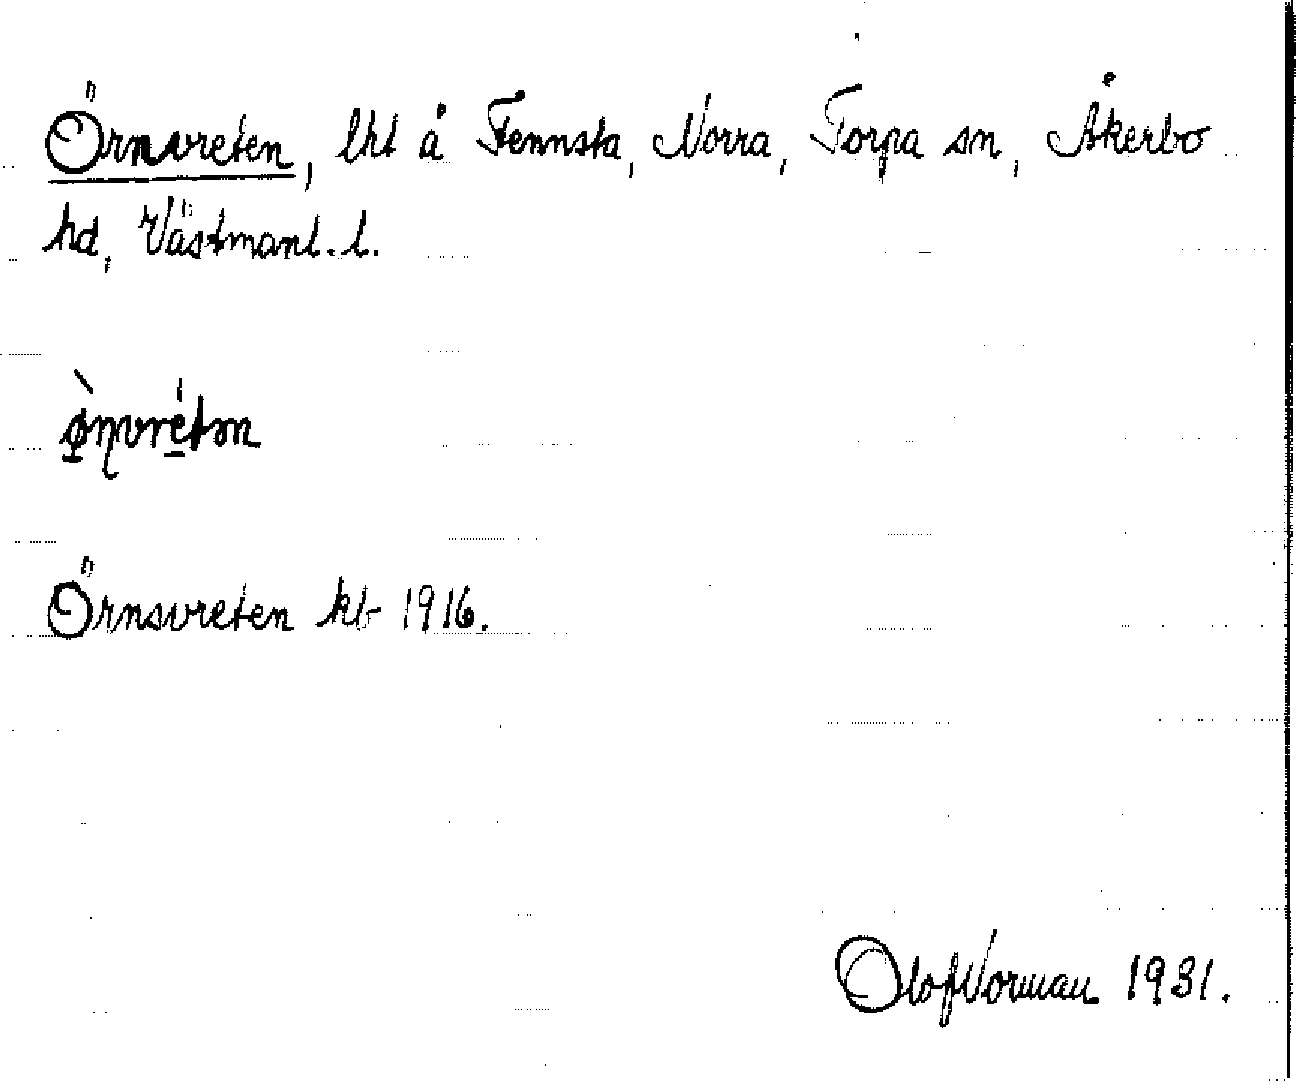 Örnsvreten, lht å Tennsta, Norra, Torpa sn, Åkerbo
hd, Västmanl. l.
Örnsvreten kb 1916.
Olof Norman 1931.